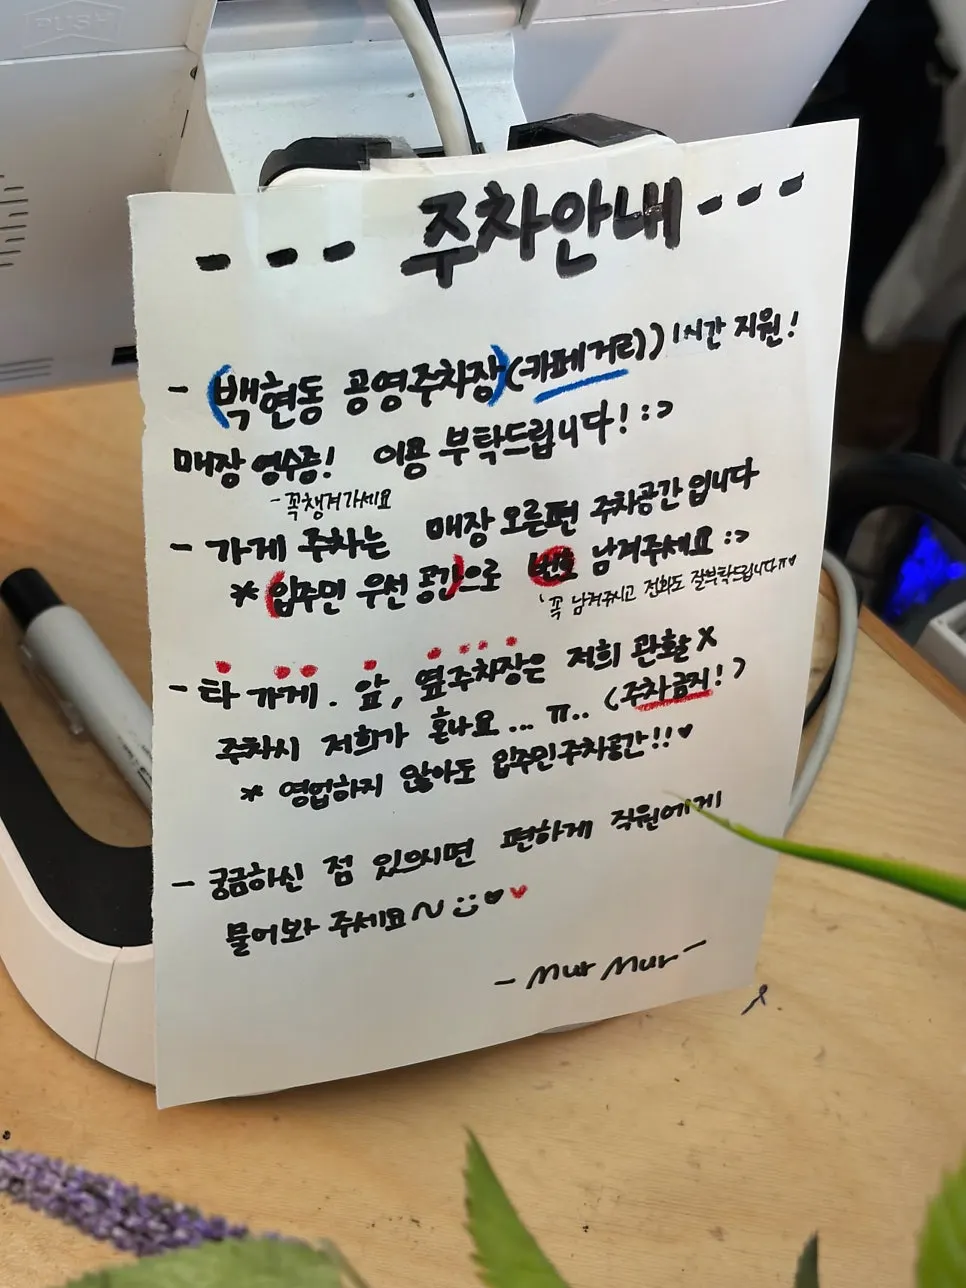 PUSH
--- 주차안내 ---
- (백현동 공영주차장)(카페거리)) 1시간 지원!
매장 영수증! 이용 부탁드립니다! :>
- 꼭챙겨가세요
- 가게 주차는 매장 오른편 주차공간 입니다
* (입주민 우선 공간)으로 번호 남겨주세요 :>
꼭 남겨주시고 전화도 잘부탁드립니다ㅠ♥
- 타 가게. 앞, 옆주차장은 저희 관할 X
주차시 저희가 혼나요... ㅠ.. (주차금지!)
* 영업하지 않아도 입주민주차공간!!♥
- 궁금하신 점 있으시면 편하게 직원에게
물어봐 주세요~ :) ♥♥
- Mur Mur -